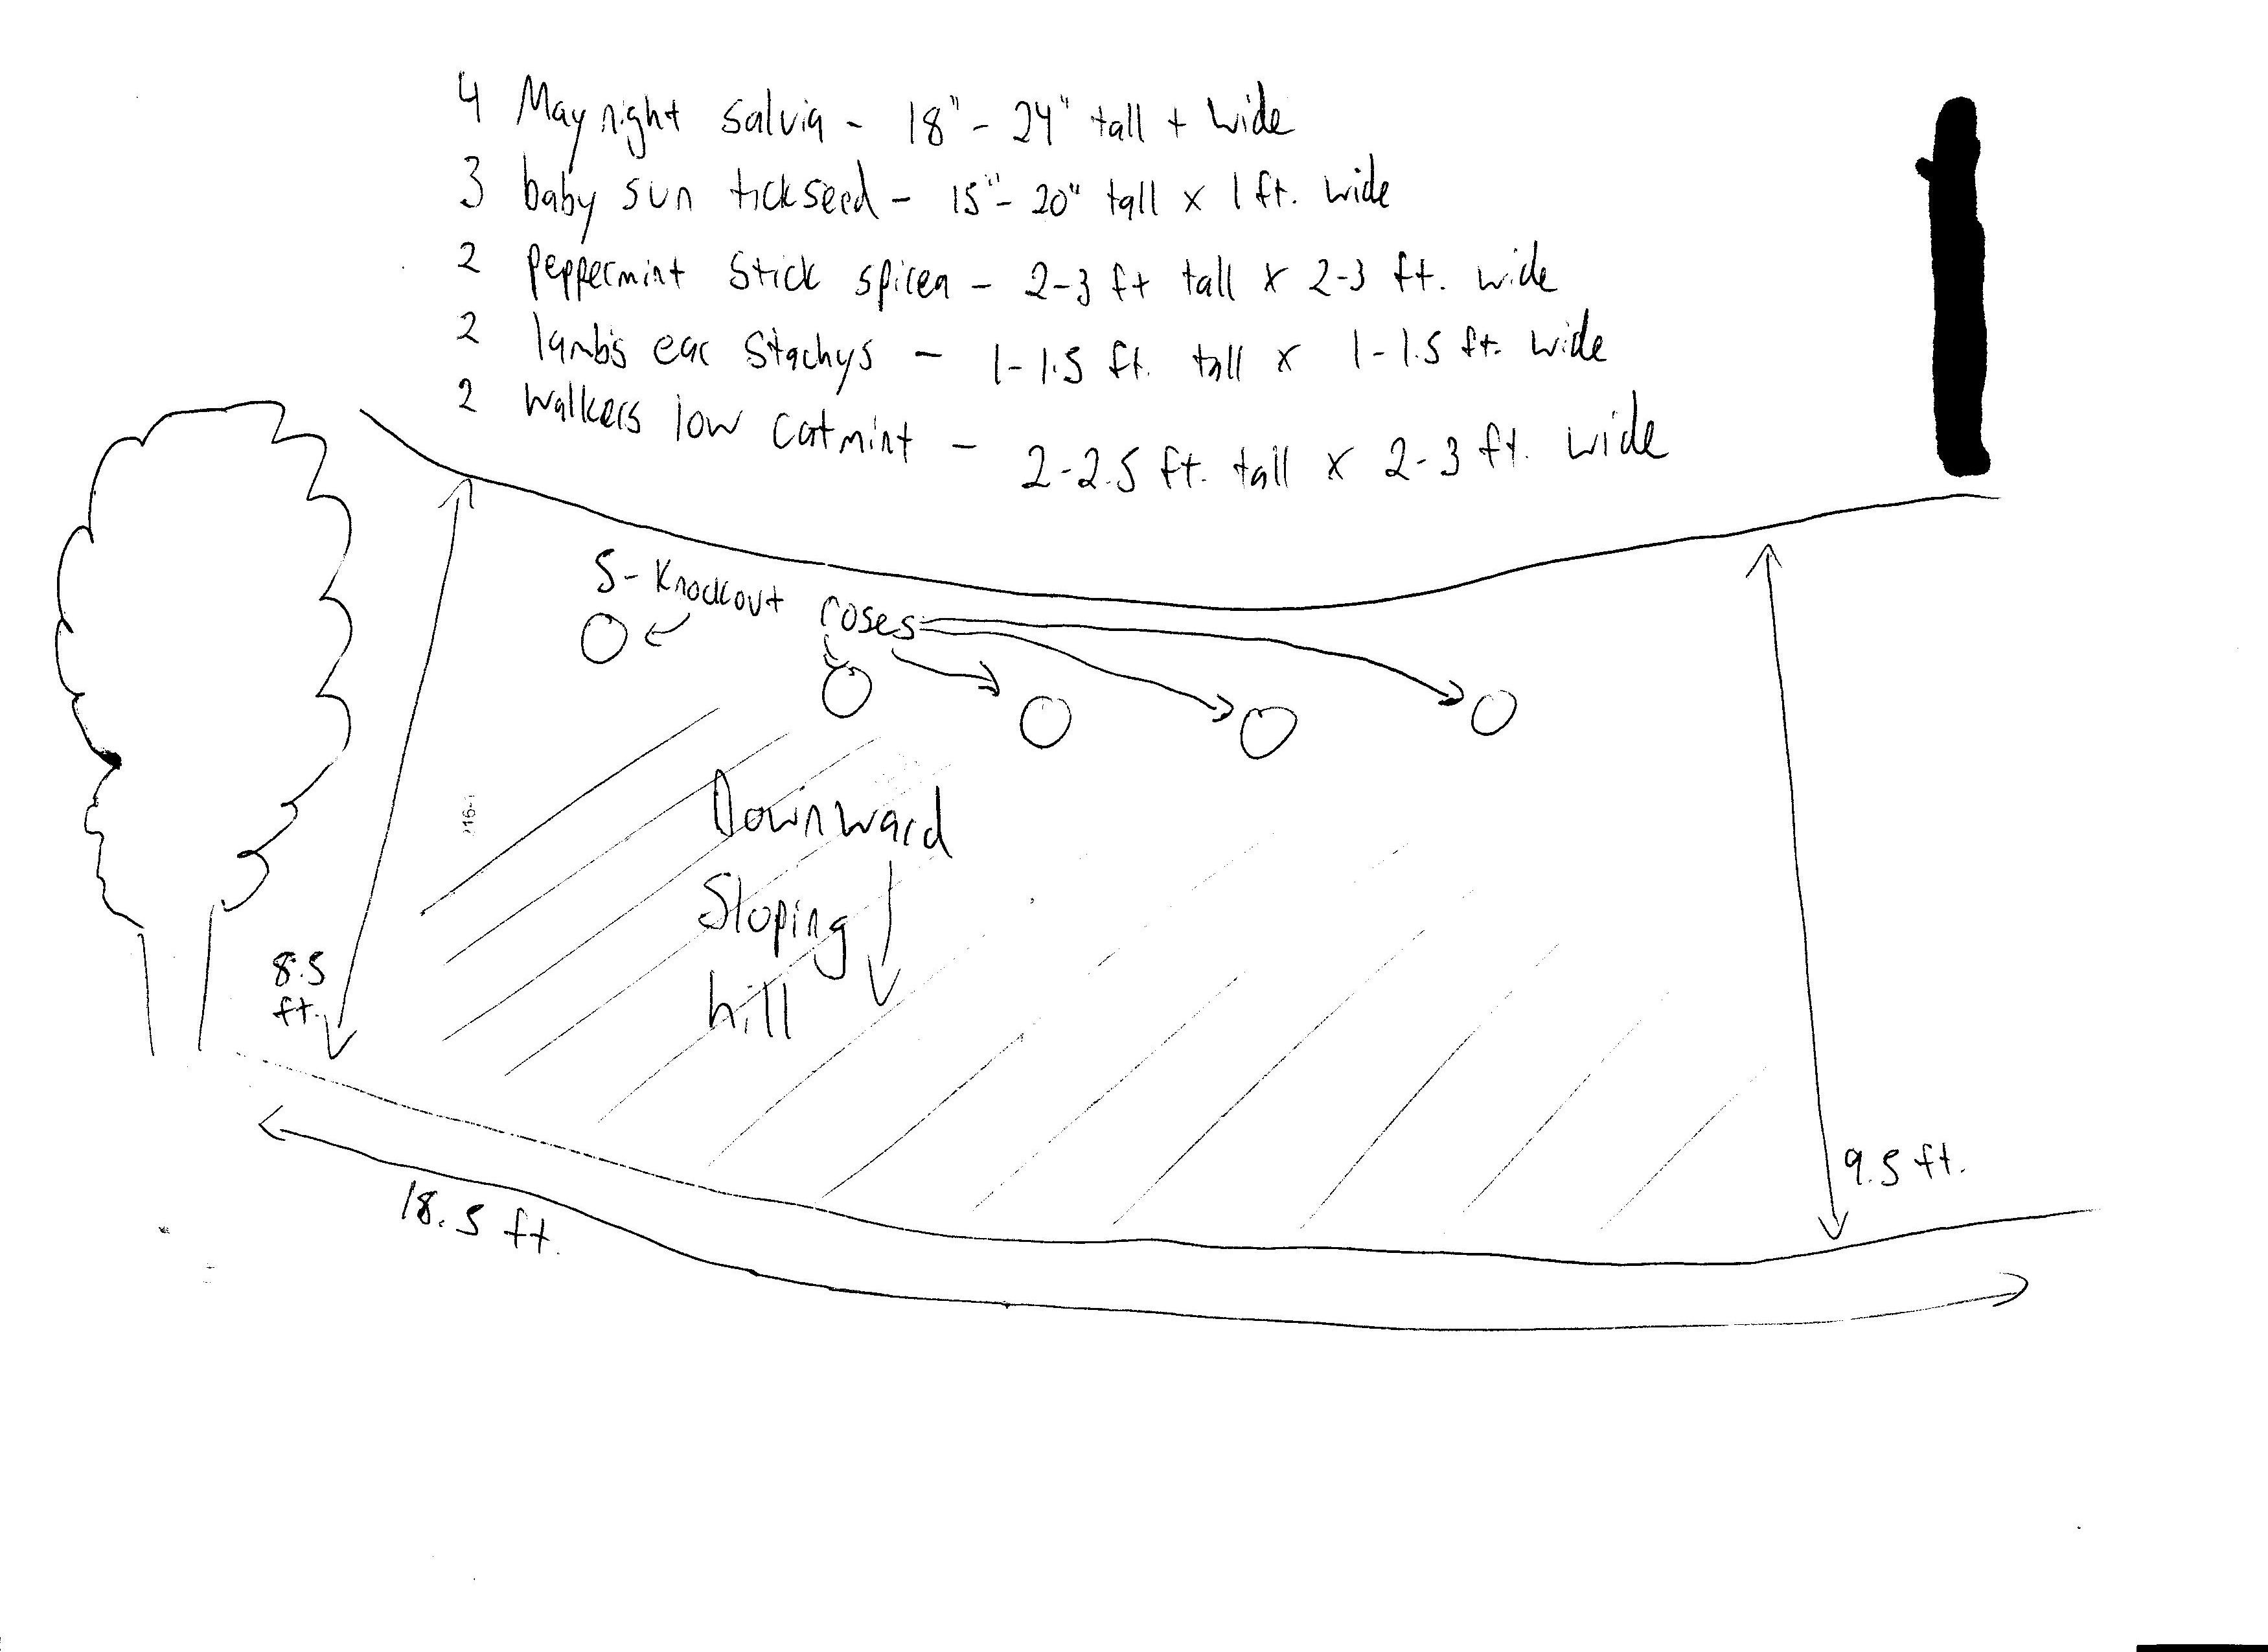 4 May night salvia - 18" - 24" tall + wide
3 baby sun tickseed - 15" - 20" tall x 1 ft. wide
2 peppermint stick spirea - 2-3 ft tall x 2-3 ft. wide
2 lambs ear Stachys - 1-1.5 ft. tall x 1-1.5 ft. wide
2 walkers low catmint - 2-2.5 ft. tall x 2-3 ft. wide
5- Knockout roses
Downward
Sloping
hill
8.5
ft.
9.5 ft.
18.5 ft.